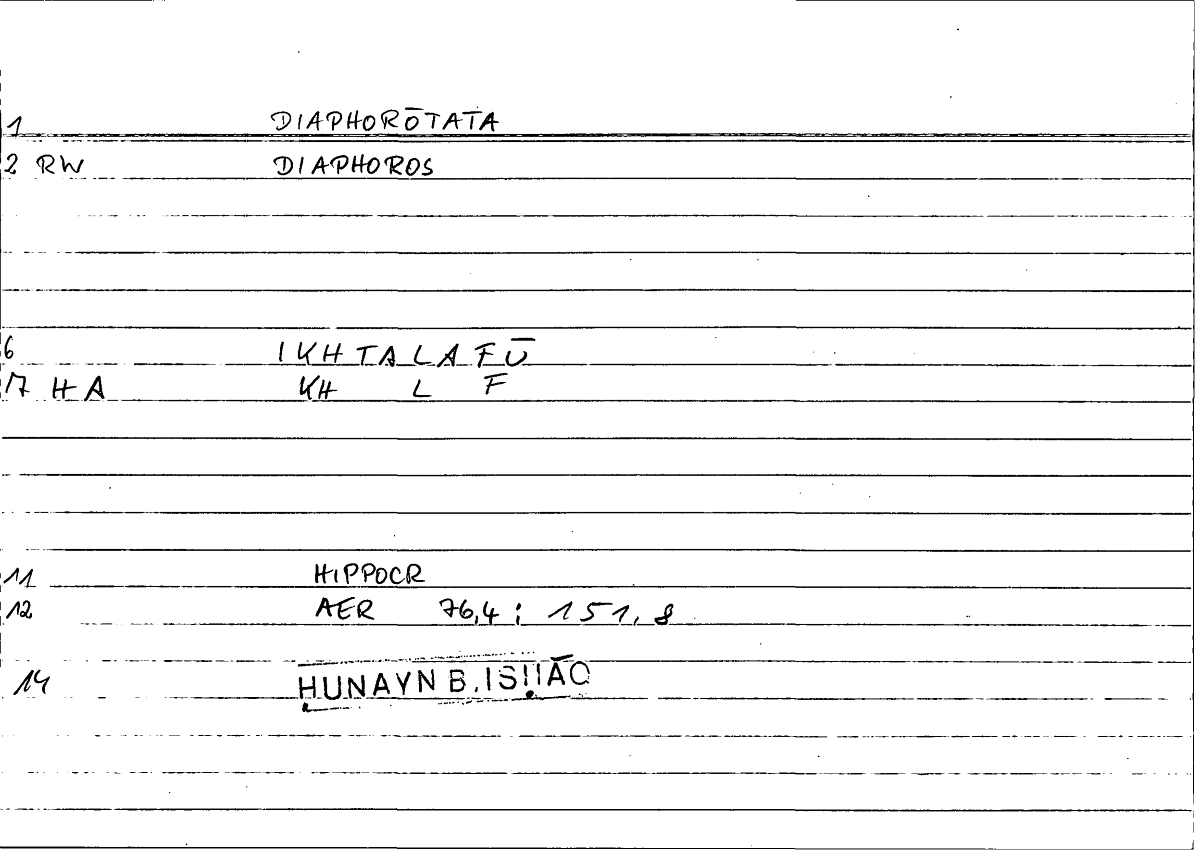 1 DIAPHORŌTATA
2 RW DIAPHOROS
6 IKHTALAFŪ
17 HA KH L F
11 HIPPOCR
12 AER 76,4 ; 151,8
14 ḤUNAYN B. ISḤĀQ